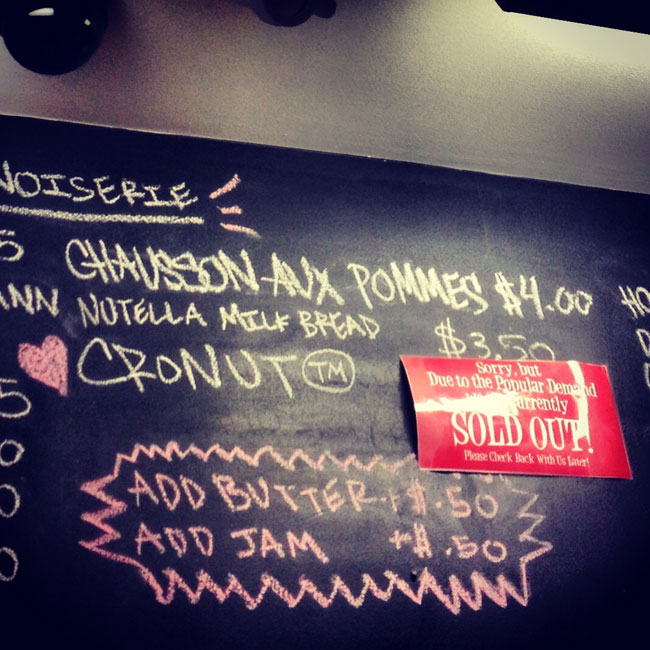 NOISERIE
5
CHAUSSON AUX POMMES $4.00
ANN
NUTELLA MILK BREAD $3.50
HO
CRONUT TM
Sorry, but
Due to the Popular Demand
urrently
SOLD OUT!
Please Check Back With Us Later!
5
0
ADD BUTTER +$.50
0
ADD JAM +$.50
0